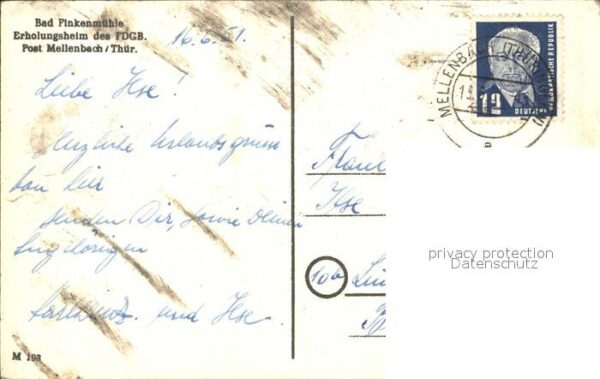 Bad Finkenmühle
Erholungsheim des FDGB.
Post Mellenbach/Thür.
16.6.51.
Liebe Ilse!
Herzliche Urlaubsgrüsse
von hier
senden Dir, sowie Deinen
Angehörigen
und Ilse
M 198
MELLENBACH (THÜR
12
DEUTSCHE DEMOKRATISCHE REPUBLIK
Ilse
10b
privacy protection
Datenschutz